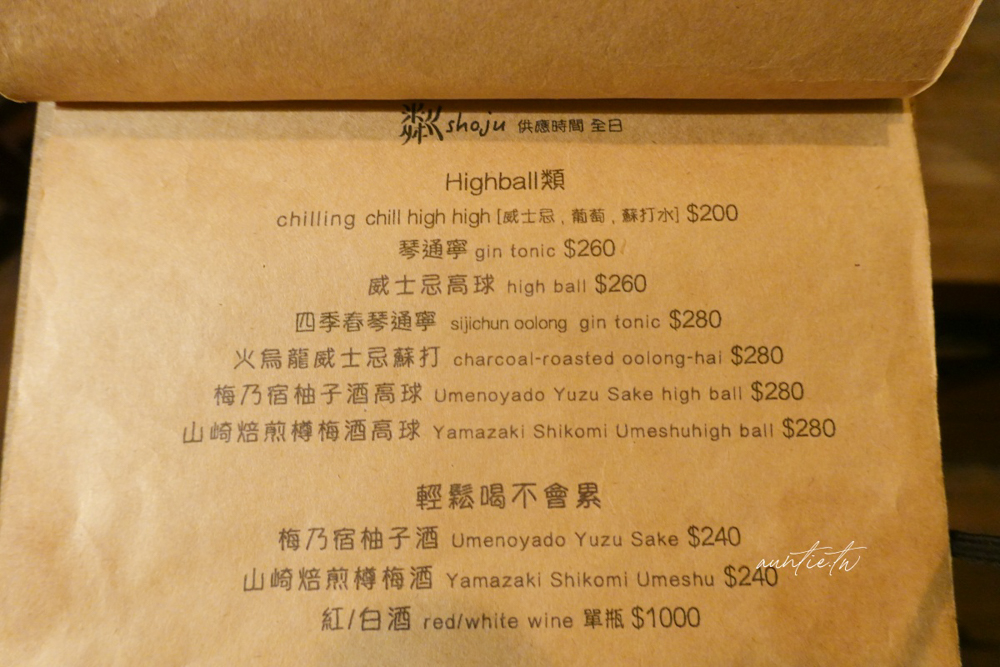 粼 shoju 供應時間 全日
Highball類
chilling chill high high [威士忌 , 葡萄 , 蘇打水] $200
琴通寧 gin tonic $260
威士忌高球 high ball $260
四季春琴通寧 sijichun oolong gin tonic $280
火烏龍威士忌蘇打 charcoal-roasted oolong-hai $280
梅乃宿柚子酒高球 Umenoyado Yuzu Sake high ball $280
山崎焙煎樽梅酒高球 Yamazaki Shikomi Umeshuhigh ball $280
輕鬆喝不會累
梅乃宿柚子酒 Umenoyado Yuzu Sake $240
auntie.tw
山崎焙煎樽梅酒 Yamazaki Shikomi Umeshu $240
紅/白酒 red/white wine 單瓶 $1000